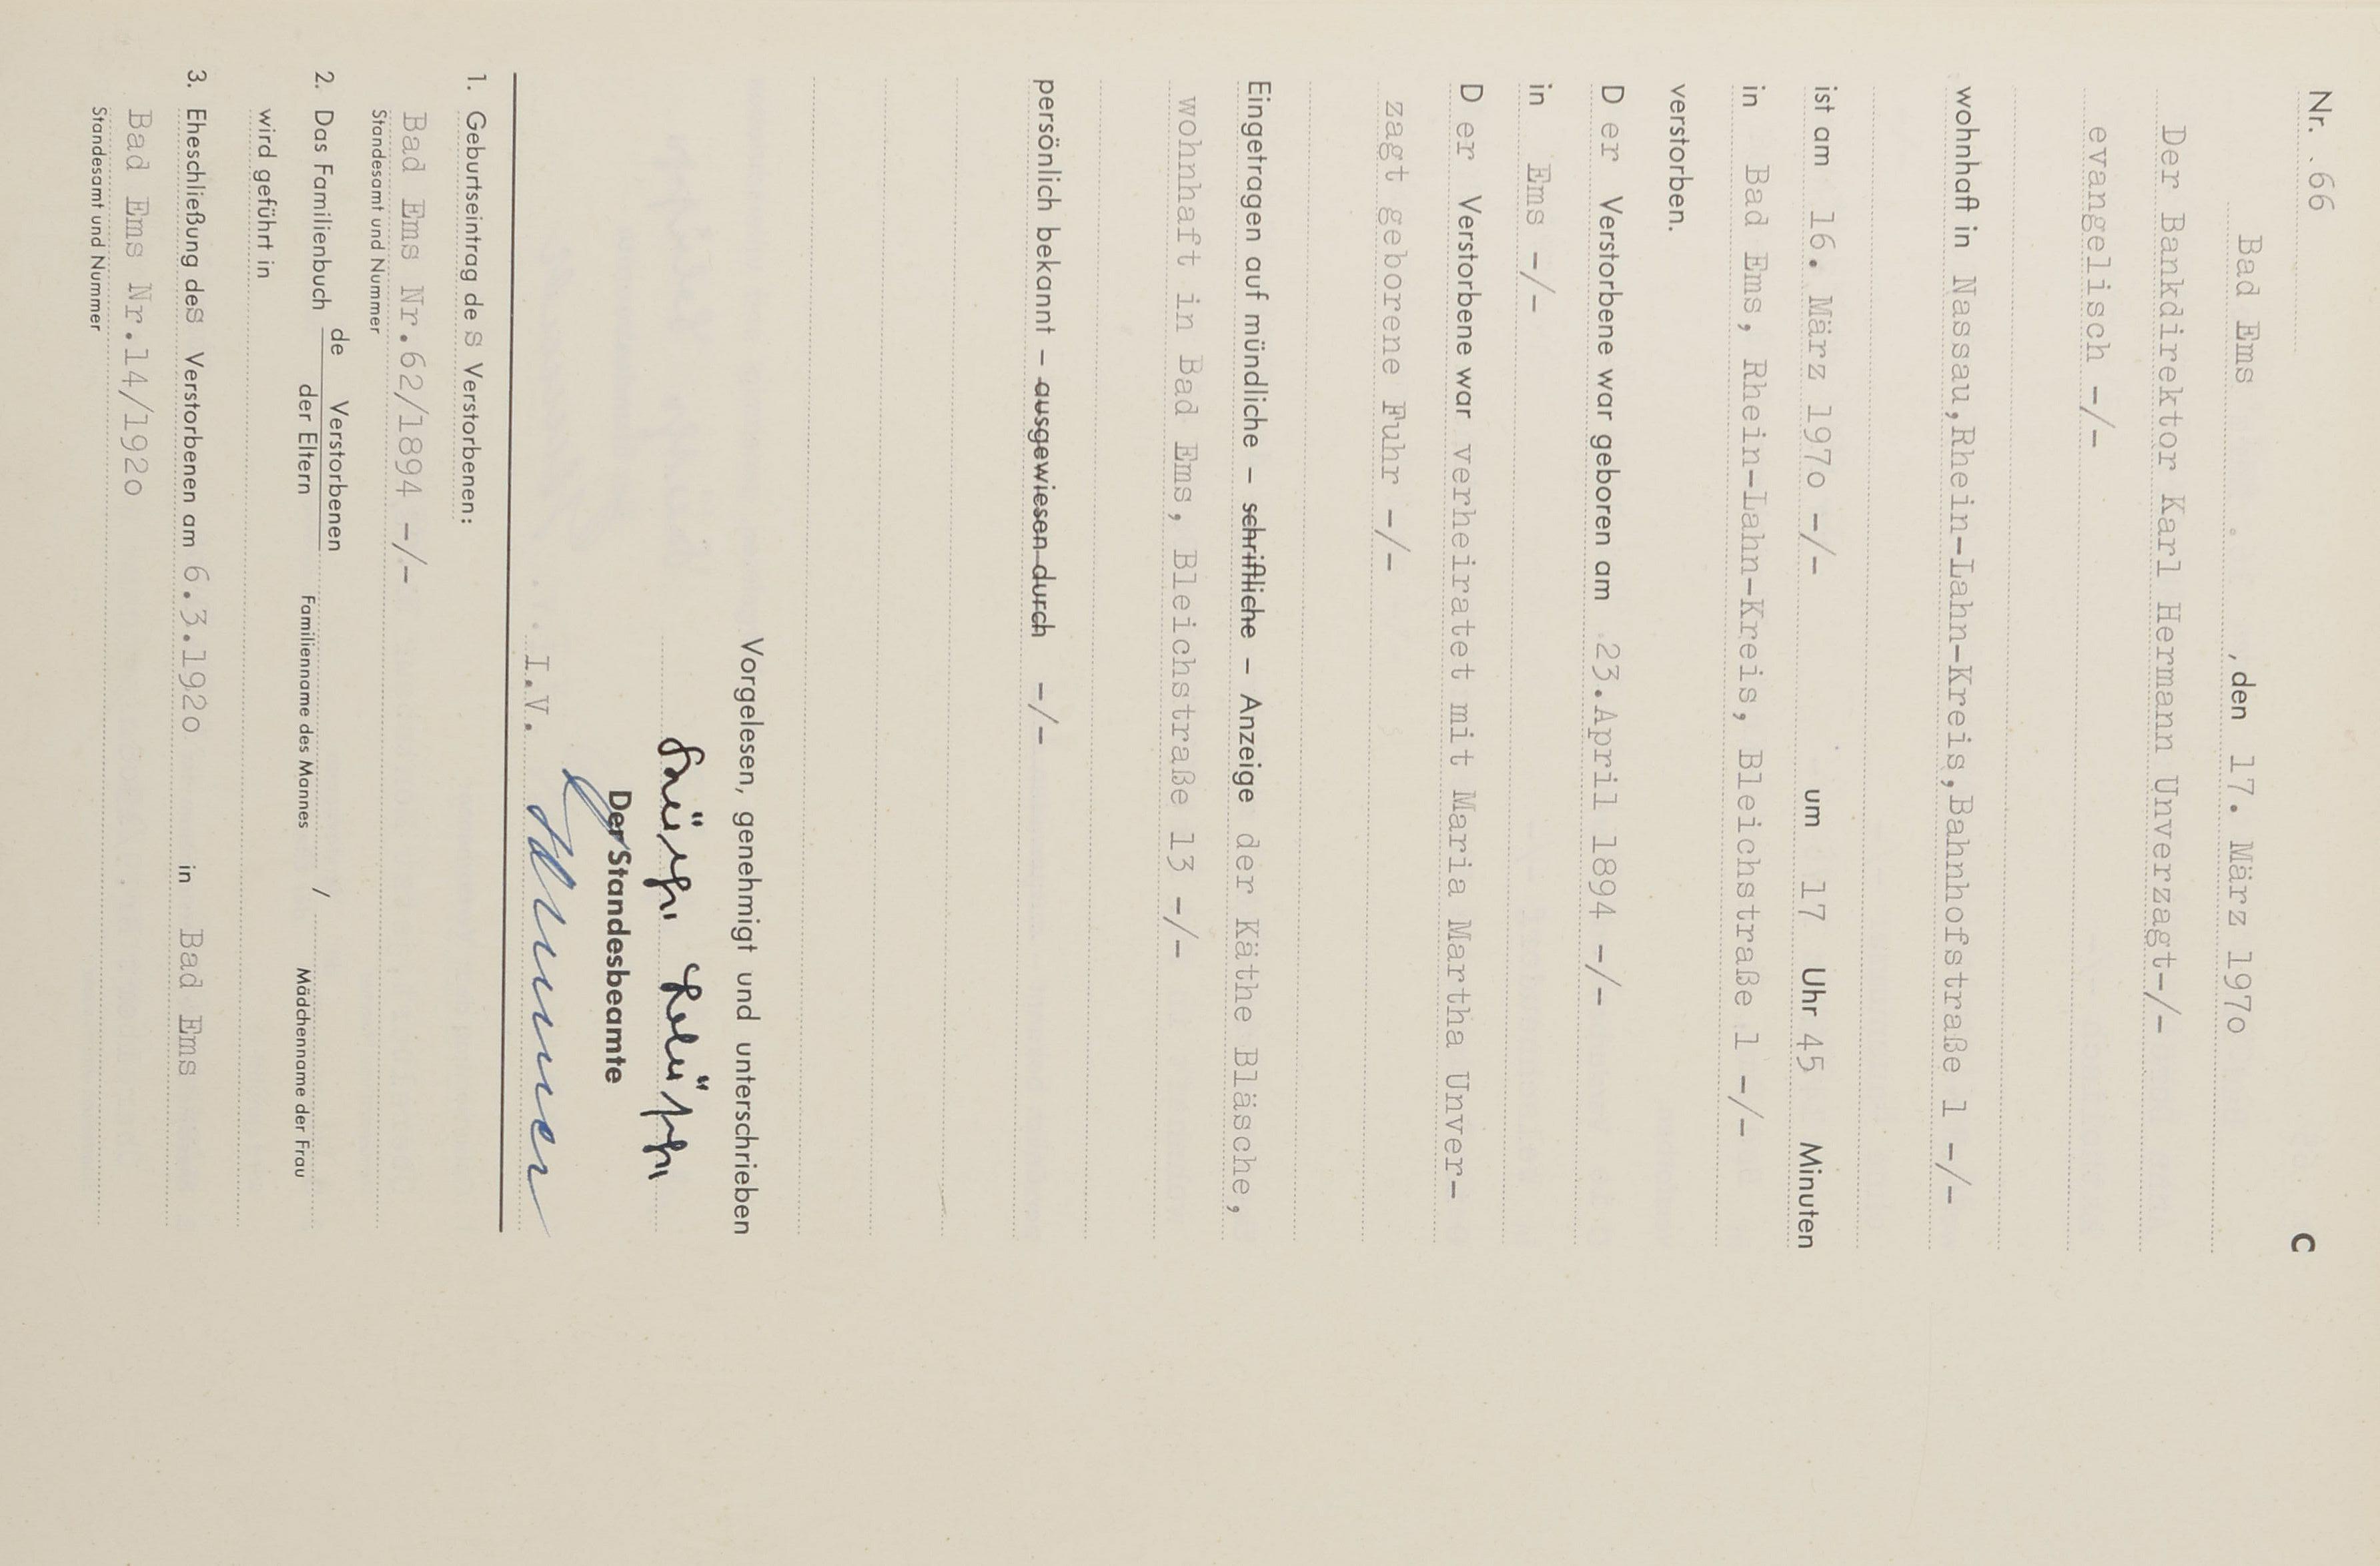 Nr. 66
C
Bad Ems, den 17. März 197o
Der Bankdirektor Karl Hermann Unverzagt-/-
evangelisch -/-
wohnhaft in Nassau,Rhein-Lahn-Kreis,Bahnhofstraße 1 -/-
ist am 16. März 197o -/- um 17 Uhr 45 Minuten
in Bad Ems, Rhein-Lahn-Kreis, Bleichstraße 1 -/-
verstorben.
D er Verstorbene war geboren am 23.April 1894 -/-
in Ems -/-
D er Verstorbene war verheiratet mit Maria Martha Unver-
zagt geborene Fuhr -/-
Eingetragen auf mündliche – schriftliche – Anzeige der Käthe Bläsche,
wohnhaft in Bad Ems, Bleichstraße 13 -/-
persönlich bekannt – ausgewiesen durch -/-
Vorgelesen, genehmigt und unterschrieben
Der Standesbeamte
I.V.
1. Geburtseintrag de s Verstorbenen:
Bad Ems Nr.62/1894 -/-
Standesamt und Nummer
2. Das Familienbuch de Verstorbenen
der Eltern
Familienname des Mannes / Mädchenname der Frau
wird geführt in
3. Eheschließung des Verstorbenen am 6.3.192o in Bad Ems
Bad Ems Nr.14/192o
Standesamt und Nummer